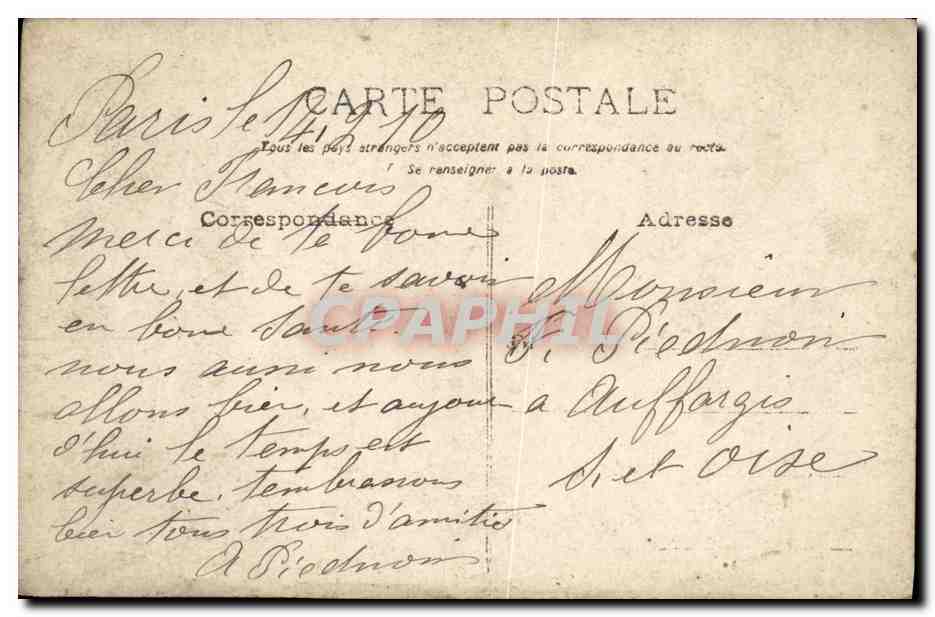 CARTE POSTALE
Tous les pays étrangers n'acceptent pas la correspondance au recto.
Se renseigner à la poste.
Correspondance
Adresse
Paris le 14, 2 10
Cher Francois
merci de te bone
lettre, et de te savoir
en bone santé.
nous aussi nous
allons bien, et aujour
d'hui le temps est
superbe. tembrassons
bien tous trois d'amitié
A Piednoir
Monsieur
F. Piednoir
a Auffargis
S. et Oise
CPAPHIL